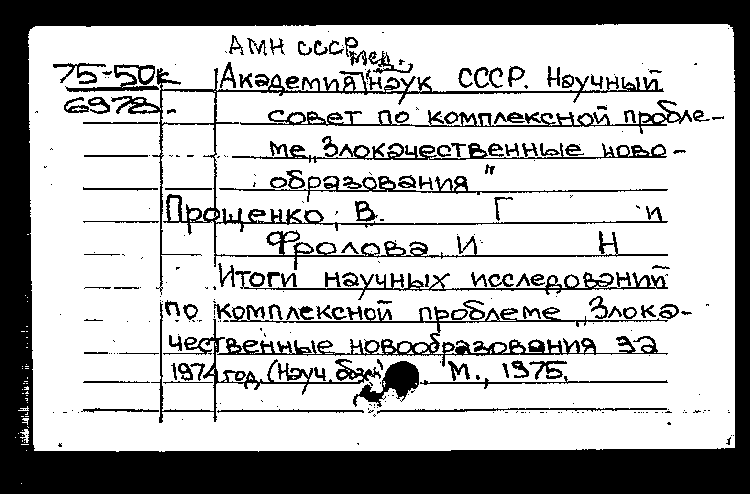 АМН СССР
мед.
75-50к Академия наук СССР. Научный
6978. совет по комплексной пробле-
ме „Злокачественные ново-
образования"
Прощенко, В. Г и
Фролова, И Н
Итоги научных исследований
по комплексной проблеме „Злока-
чественные новообразования за
1974 год. (Науч. М., 1975.